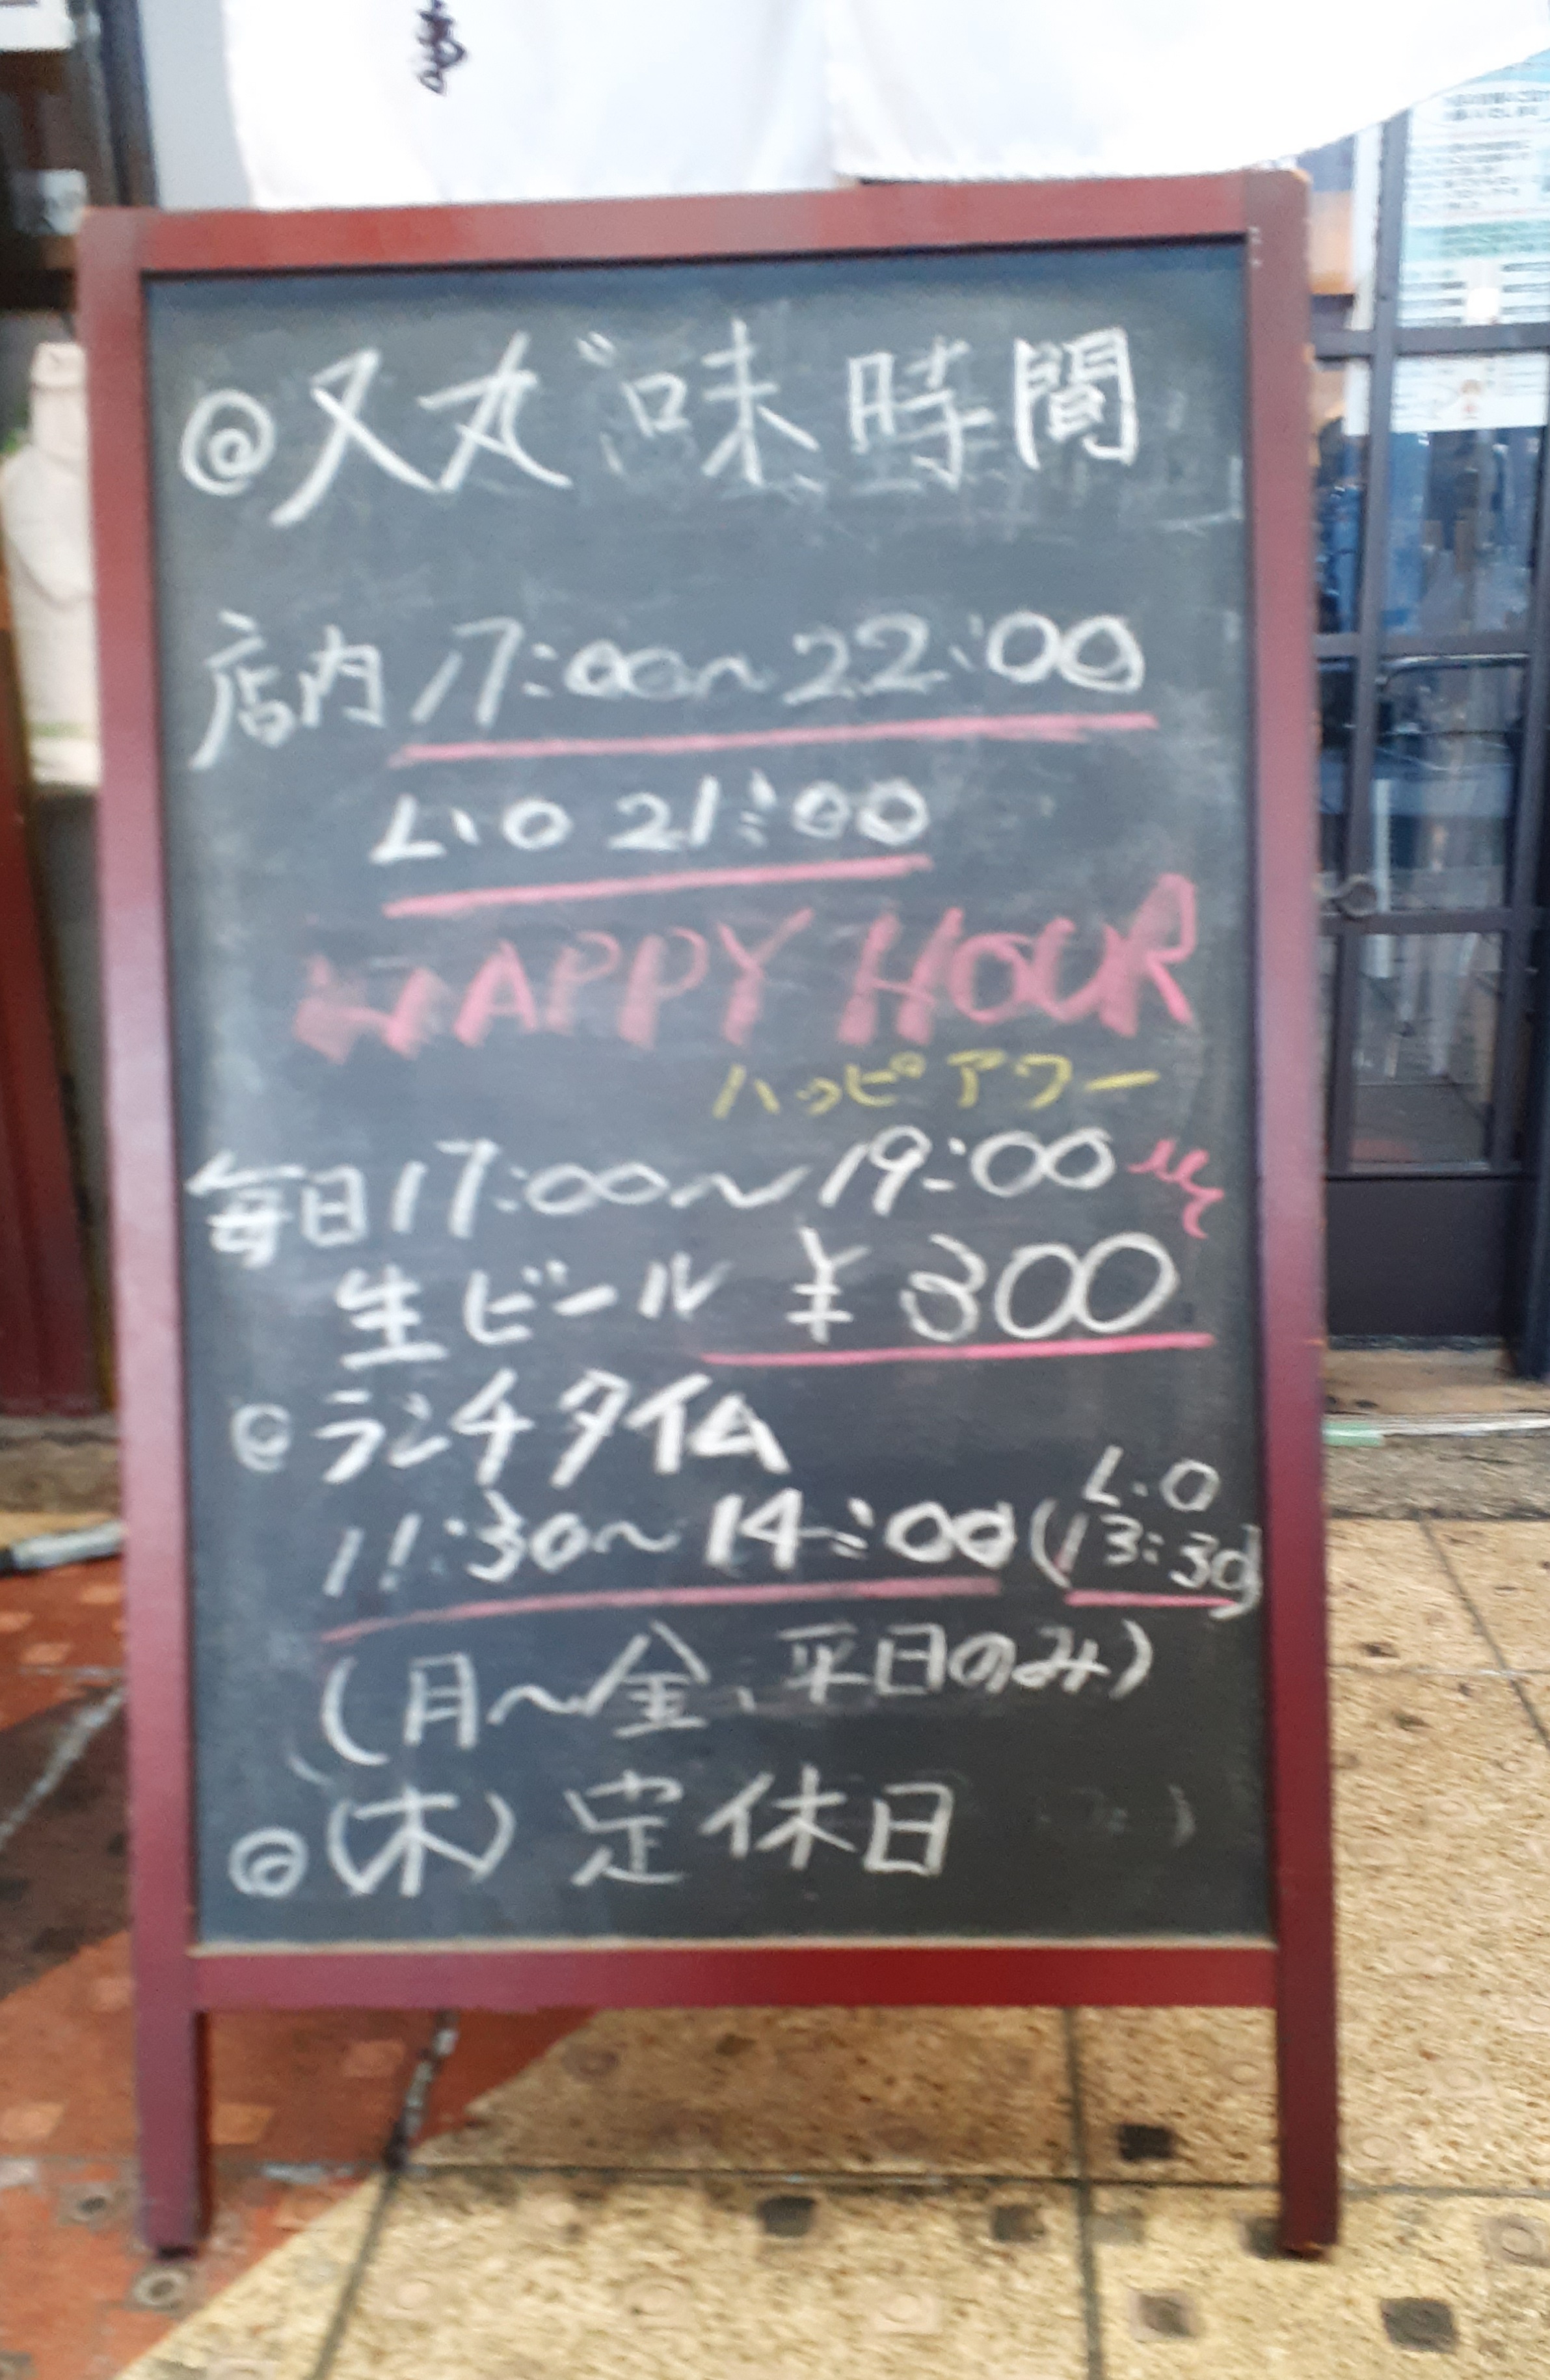 ◎又丸〝味時間
店内 17:00〜22:00
L.O 21:00
HAPPY HOUR
ハッピアワー
毎日17:00〜19:00
生ビール ¥300
◎ランチタイム
11:30〜14:00(L.O 13:30)
(月〜金、平日のみ)
◎(木)定休日